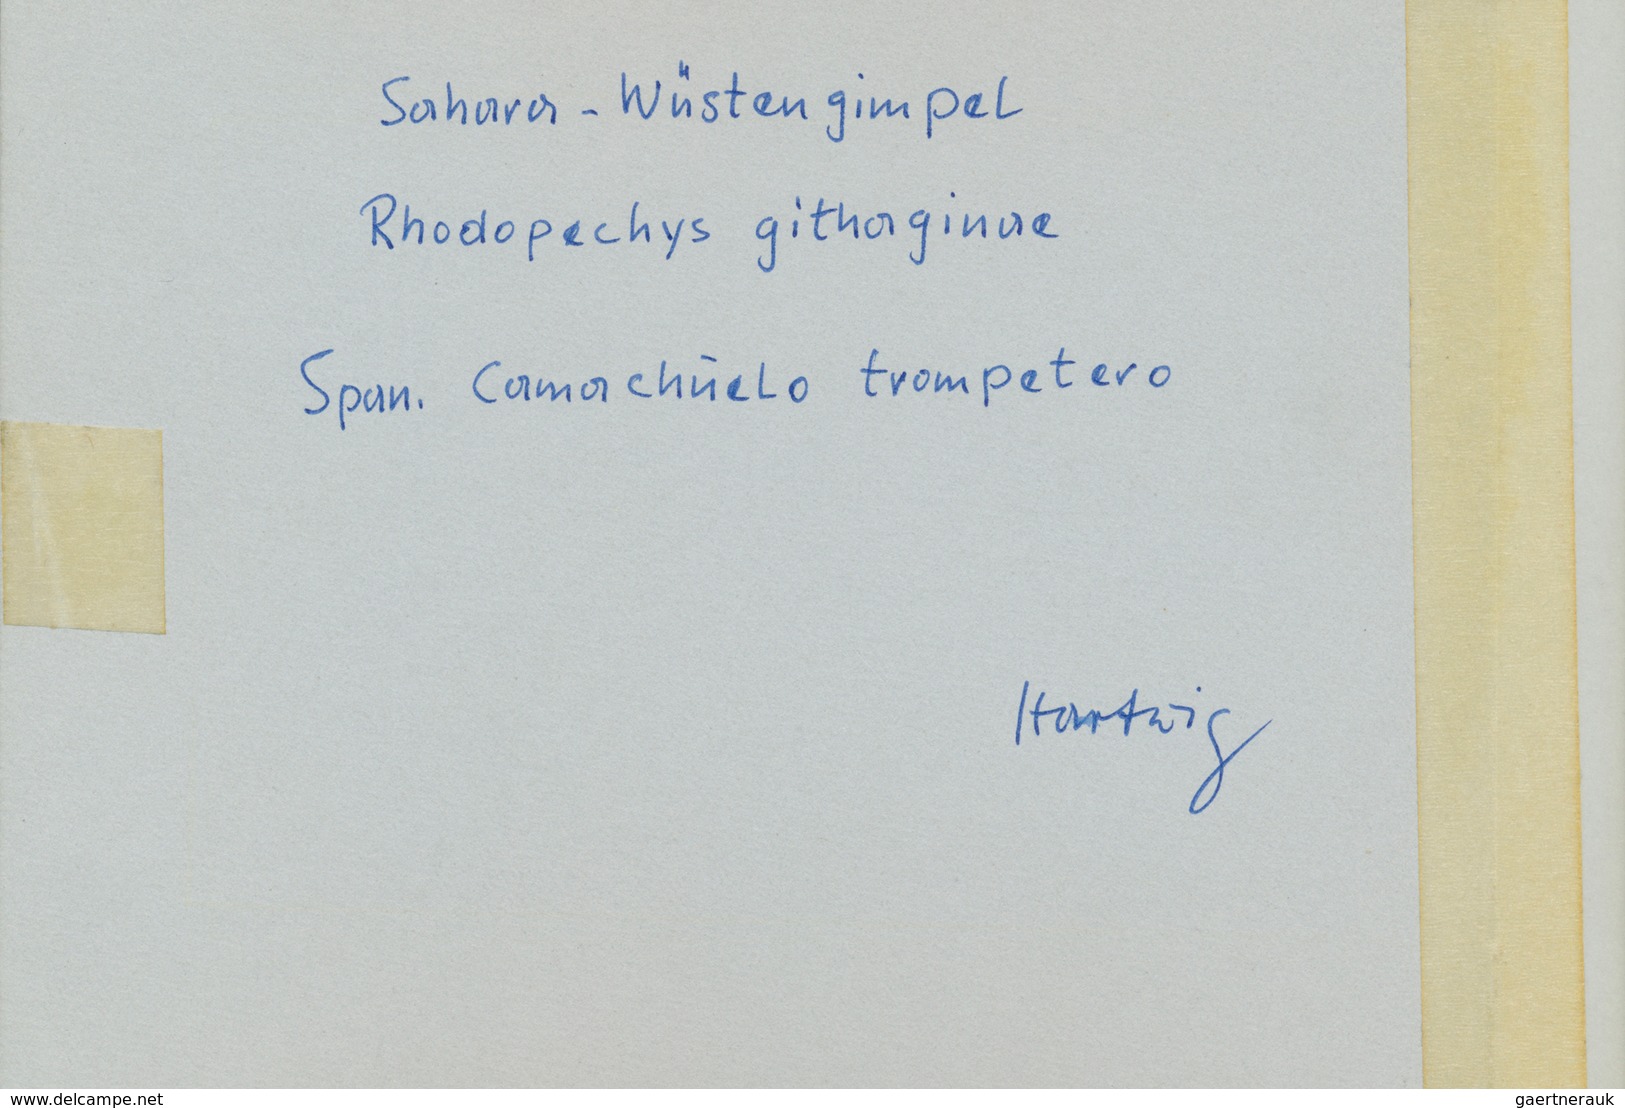 Sahara - Wüstengimpel
Rhodopechys githaginae
Span. Camachuelo trompetero
Hartwig
www.delcampe.net
gaertnerauk